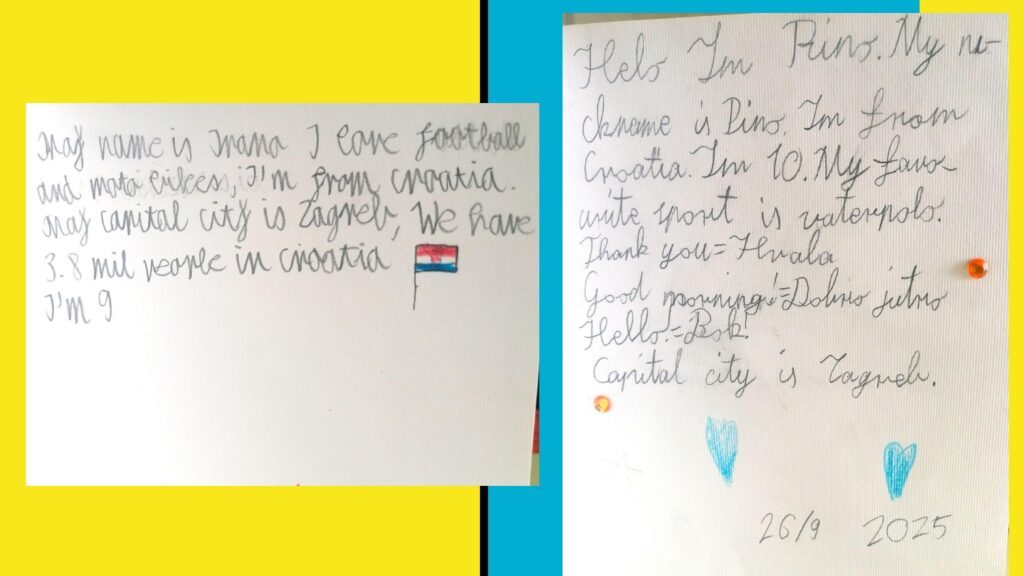 My name is Ivana I love football
and moto bikess, I'm from croatia.
My capital city is Zagreb, We have
3.8 mil people in croatia
I'm 9
Helo Im Pino. My ni-
ckname is Pino. Im from
Croatia. Im 10. My favo-
urite sport is vaterpolo.
Thank you = Hvala
Good morning! = Dobro jutro
Hello! =
Capital city is Zagreb.
26/9 2025